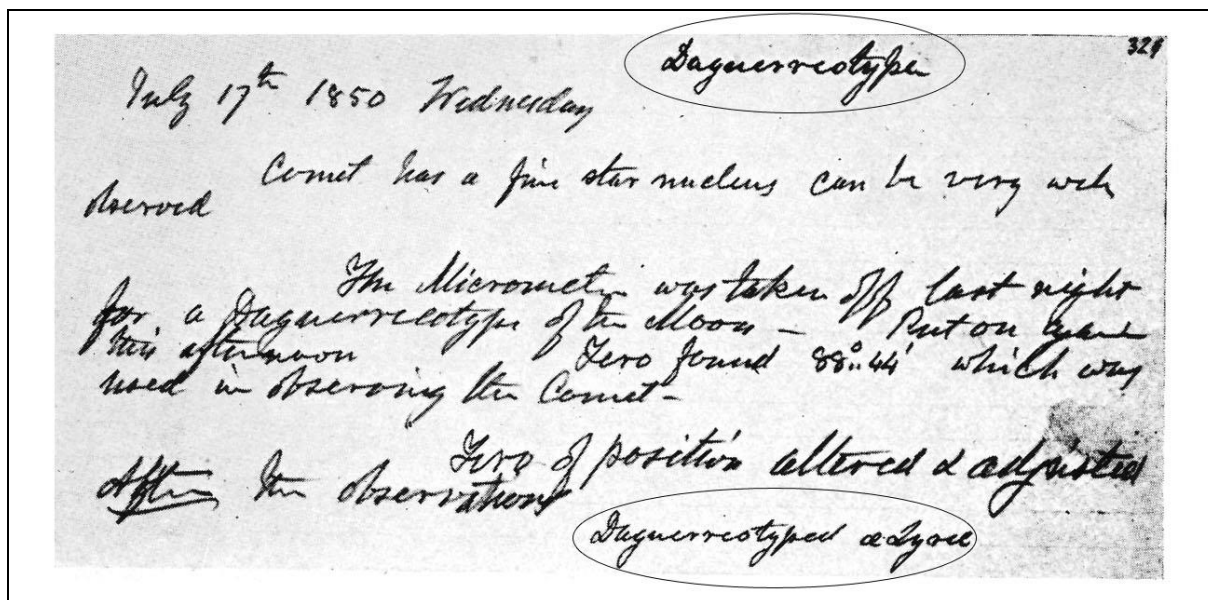 Daguerreotype
July 17th 1850 Wednesday
Comet has a fine star nucleus can be very well
observed
The Micrometer was taken off last night
for a Daguerreotype of the Moon – Put on again
this afternoon Zero found 88°..44' which was
used in observing the Comet –
Zero of position altered & adjusted
After the observations
Daguerreotyped α Lyrae